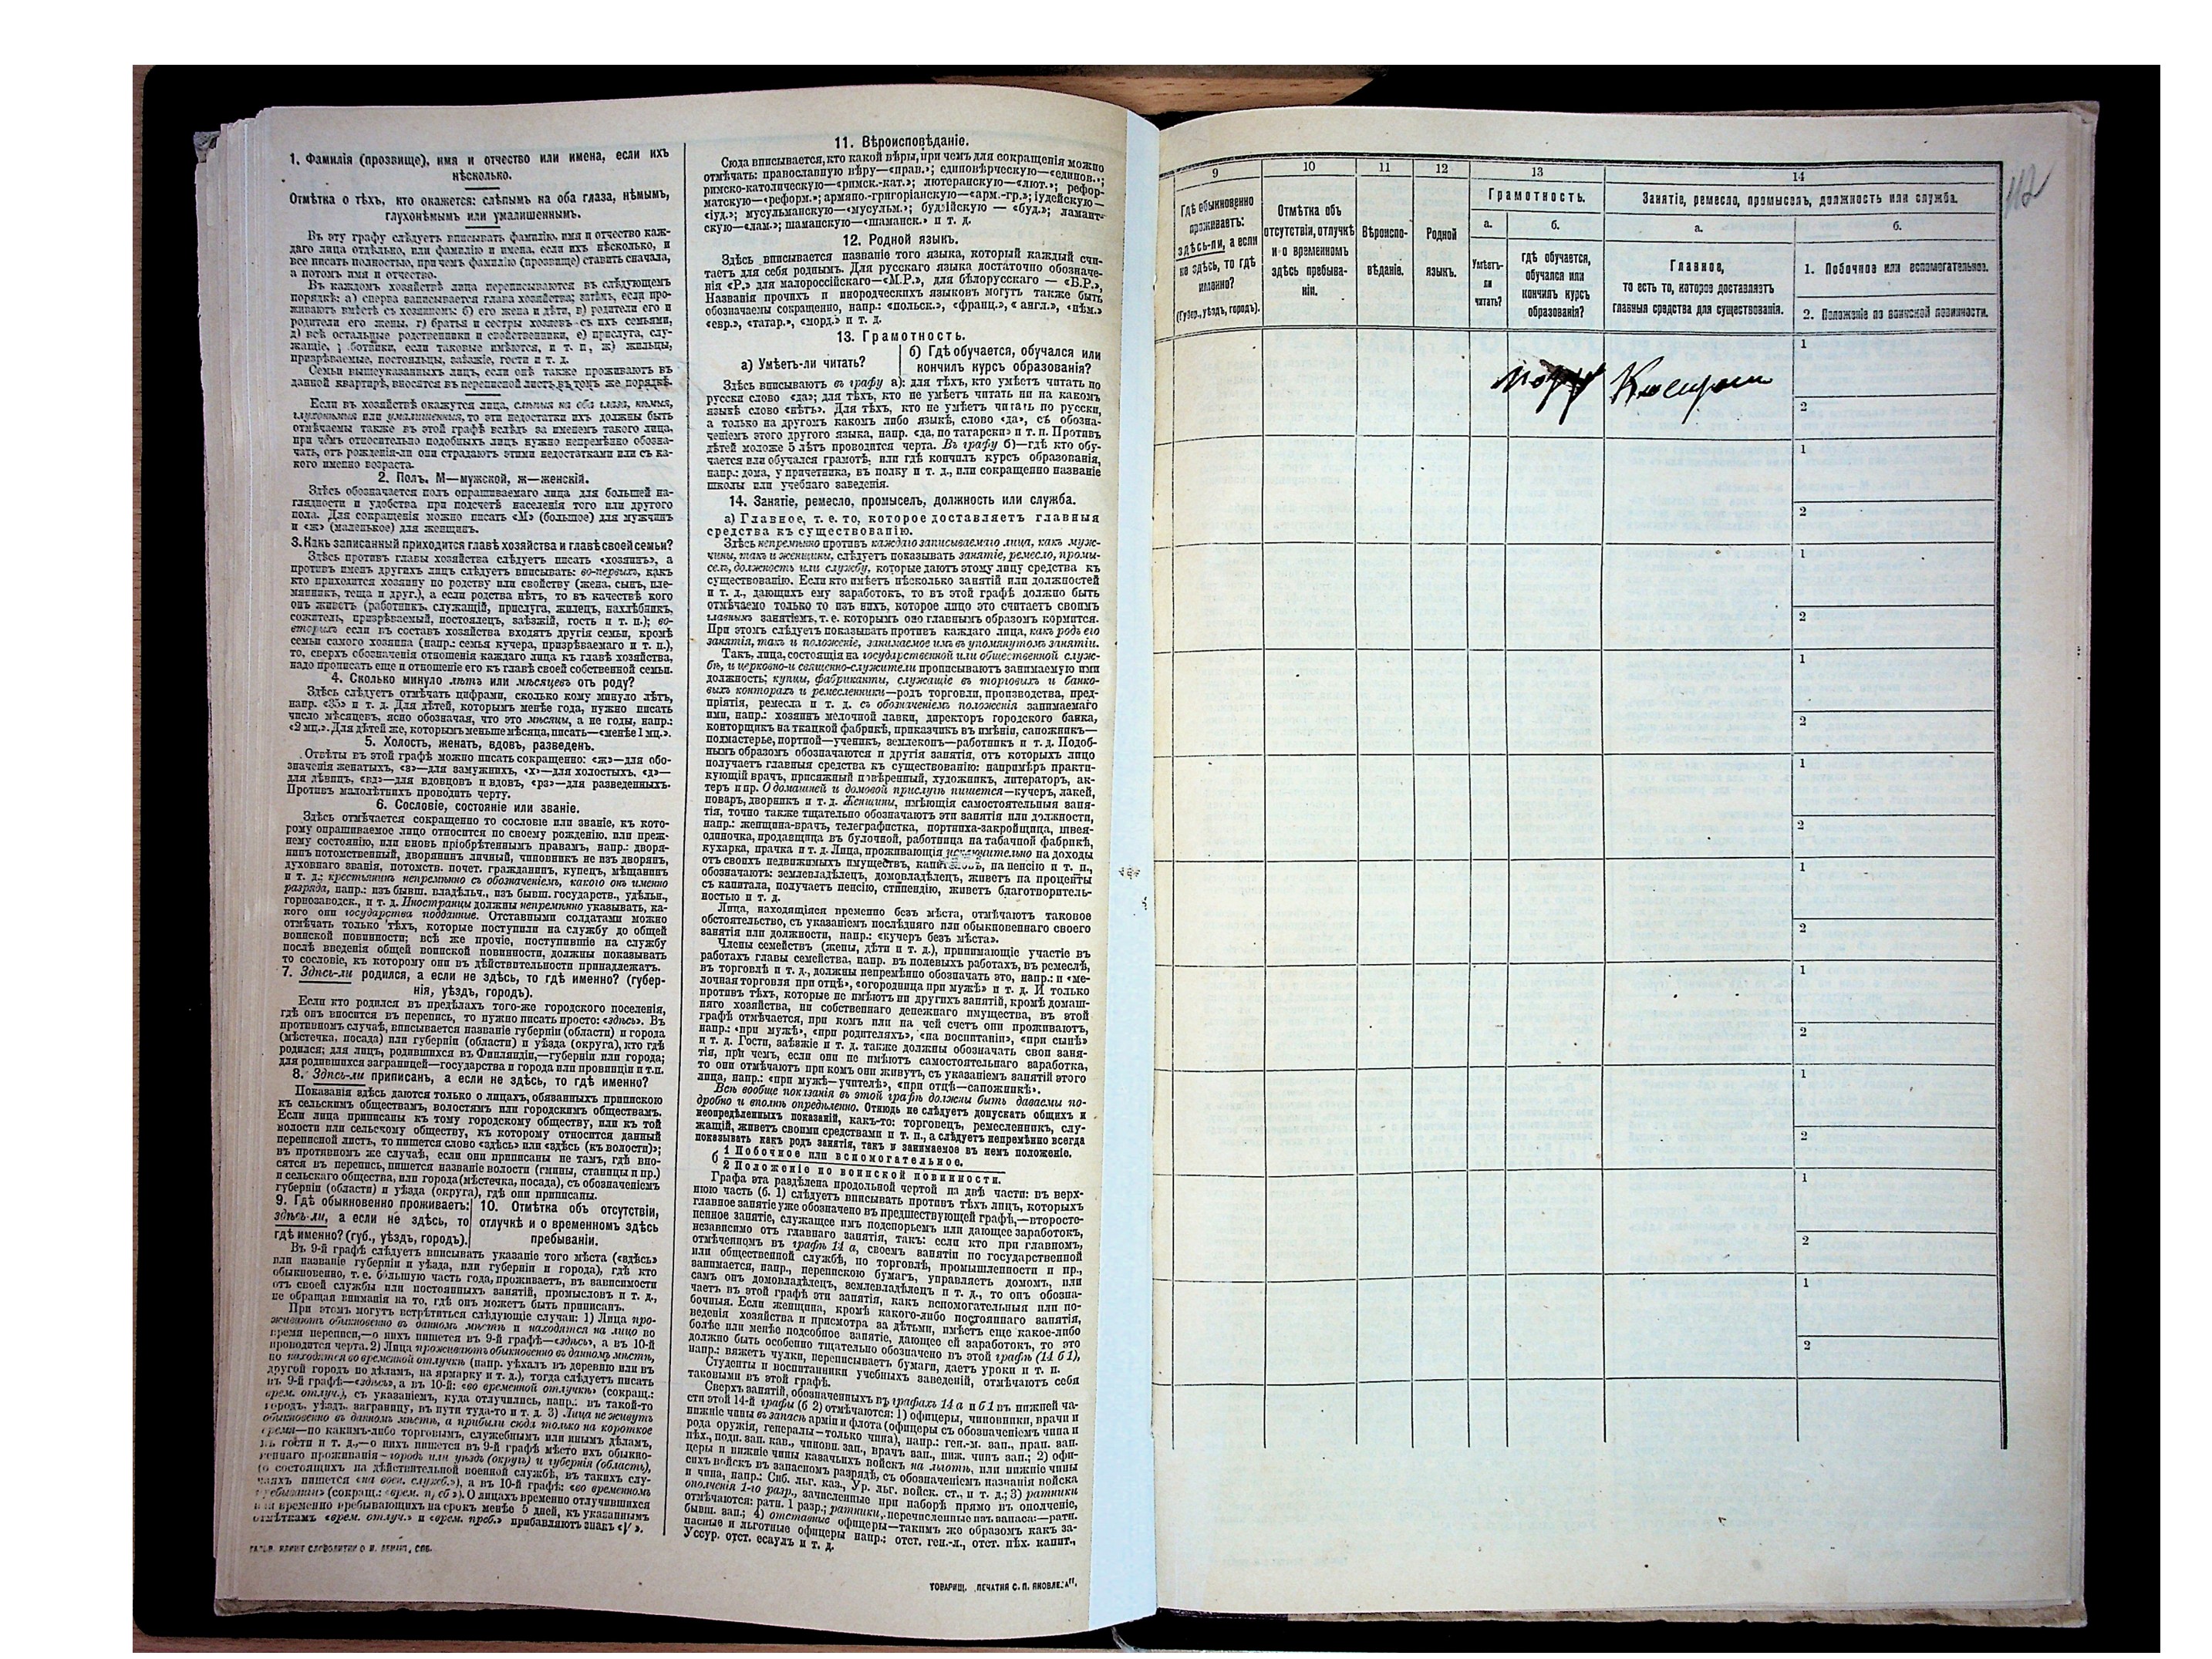 1. Фамилія (прозвище), имя и отчество или имена, если ихъ
нѣсколько.
Отмѣтка о тѣхъ, кто окажется: слѣпымъ на оба глаза, нѣмымъ,
глухонѣмымъ или умалишеннымъ.
Въ эту графу слѣдуетъ вписывать фамилію, имя и отчество каж-
даго лица отдѣльно, или фамилію и имена, если ихъ нѣсколько, и
все писать полностью, при чемъ фамилію (прозвище) ставить сначала,
а потомъ имя и отчество.
Въ каждомъ хозяйствѣ лица переписываются въ слѣдующемъ
порядкѣ: а) сперва записывается глава хозяйства; затѣмъ, если про-
живаютъ вмѣстѣ съ хозяиномъ: б) его жена и дѣти, в) родители его и
родители его жены, г) братья и сестры хозяевъ съ ихъ семьями,
д) всѣ остальные родственники и свойственники, е) прислуга, слу-
жащіе, работники, если таковые имѣются, и т. п., ж) жильцы,
призрѣваемые, постояльцы, заѣзжіе, гости и т. п.
Семьи вышеуказанныхъ лицъ, если онѣ также проживаютъ въ
данной квартирѣ, вносятся въ переписной листъ въ томъ же порядкѣ.
Если въ хозяйствѣ окажутся лица, слѣпыя на оба глаза, нѣмыя,
глухонѣмыя или умалишенныя, то эти недостатки ихъ должны быть
отмѣчаемы также въ этой графѣ вслѣдъ за именемъ такого лица,
при чемъ относительно подобныхъ лицъ нужно непремѣнно обозна-
чать, отъ рожденія-ли они страдаютъ этими недостатками или съ ка-
кого именно возраста.
2. Полъ. М—мужской, ж—женскій.
Здѣсь обозначается полъ опрашиваемаго лица для большей на-
глядности и удобства при подсчетѣ населенія того или другого
пола. Для сокращенія можно писать «М» (большое) для мужчинъ
и «ж» (маленькое) для женщинъ.
3. Какъ записанный приходится главѣ хозяйства и главѣ своей семьи?
Здѣсь противъ главы хозяйства слѣдуетъ писать «хозяинъ», а
противъ именъ другихъ лицъ слѣдуетъ вписывать: во-первыхъ, какъ
кто приходится хозяину по родству или свойству (жена, сынъ, пле-
мянникъ, теща и друг.), а если родства нѣтъ, то въ качествѣ кого
онъ живетъ (работникъ, служащій, прислуга, жилецъ, нахлѣбникъ,
сожитель, призрѣваемый, постоялецъ, заѣзжій, гость и т. п.); во-
вторыхъ если въ составъ хозяйства входятъ другія семьи, кромѣ
семьи самого хозяина (напр.: семья кучера, призрѣваемаго и т. п.),
то, сверхъ обозначенія отношенія каждаго лица къ главѣ хозяйства,
надо прописать еще и отношеніе его къ главѣ своей собственной семьи.
4. Сколько минуло лѣтъ или мѣсяцевъ отъ роду?
Здѣсь слѣдуетъ отмѣчать цифрами, сколько кому минуло лѣтъ,
напр. «35» и т. д. Для дѣтей, которымъ менѣе года, нужно писать
число мѣсяцевъ, ясно обозначая, что это мѣсяцы, а не годы, напр.:
«2 мц.». Для дѣтей же, которымъ меньше мѣсяца, писать—«менѣе 1 мц.».
5. Холостъ, женатъ, вдовъ, разведенъ.
Отвѣты въ этой графѣ можно писать сокращенно: «ж»—для обо-
значенія женатыхъ, «з»—для замужнихъ, «х»—для холостыхъ, «д»—
для дѣвицъ, «вд»—для вдовцовъ и вдовъ, «рз»—для разведенныхъ.
Противъ малолѣтнихъ проводить черту.
6. Сословіе, состояніе или званіе.
Здѣсь отмѣчается сокращенно то сословіе или званіе, къ кото-
рому опрашиваемое лицо относится по своему рожденію, или преж-
нему состоянію, или вновь пріобрѣтеннымъ правамъ, напр.: дворя-
нинъ потомственный, дворянинъ личный, чиновникъ не изъ дворянъ,
духовнаго званія, потомств. почет. гражданинъ, купецъ, мѣщанинъ
и т. д.; крестьянинъ непремѣнно съ обозначеніемъ, какого онъ именно
разряда, напр.: изъ бывш. владѣльч., изъ бывш. государств., удѣльн.,
горнозаводск., и т. д. Иностранцы должны непремѣнно указывать, ка-
кого они государства подданные. Отставными солдатами можно
отмѣчать только тѣхъ, которые поступили на службу до общей
воинской повинности; всѣ же прочіе, поступившіе на службу
послѣ введенія общей воинской повинности, должны показывать
то сословіе, къ которому они въ дѣйствительности принадлежатъ.
7. Здѣсь-ли родился, а если не здѣсь, то гдѣ именно? (губер-
нія, уѣздъ, городъ).
Если кто родился въ предѣлахъ того-же городского поселенія,
гдѣ онъ вносится въ перепись, то нужно писать просто: «здѣсь». Въ
противномъ случаѣ, вписывается названіе губерніи (области) и города
(мѣстечка, посада) или губерніи (области) и уѣзда (округа), кто гдѣ
родился; для лицъ, родившихся въ Финляндіи,—губерніи или города;
для родившихся заграницей—государства и города или провинціи и т.п.
8. Здѣсь-ли приписанъ, а если не здѣсь, то гдѣ именно?
Показанія здѣсь даются только о лицахъ, обязанныхъ припискою
къ сельскимъ обществамъ, волостямъ или городскимъ обществамъ.
Если лица приписаны къ тому городскому обществу, или къ той
волости или сельскому обществу, къ которому относится данный
переписной листъ, то пишется слово «здѣсь» или «здѣсь (къ волости)»;
въ противномъ же случаѣ, если они приписаны не тамъ, гдѣ вно-
сятся въ перепись, пишется названіе волости (гмины, станицы и пр.)
и сельскаго общества, или города (мѣстечка, посада), съ обозначеніемъ
губерніи (области) и уѣзда (округа), гдѣ они приписаны.
9. Гдѣ обыкновенно проживаетъ:
здѣсь-ли, а если не здѣсь, то
гдѣ именно? (губ., уѣздъ, городъ).
10. Отмѣтка объ отсутствіи,
отлучкѣ и о временномъ здѣсь
пребываніи.
Въ 9-й графѣ слѣдуетъ вписывать указаніе того мѣста («здѣсь»
или названіе губерніи и уѣзда, или губерніи и города), гдѣ кто
обыкновенно, т. е. бо́льшую часть года, проживаетъ, въ зависимости
отъ своей службы или постоянныхъ занятій, промысловъ и т. д.,
не обращая вниманія на то, гдѣ онъ можетъ быть приписанъ.
При этомъ могутъ встрѣтиться слѣдующіе случаи: 1) Лица про-
живаютъ обыкновенно въ данномъ мѣстѣ и находятся на лицо во
время переписи,—о нихъ пишется въ 9-й графѣ—«здѣсь», а въ 10-й
проводится черта. 2) Лица проживаютъ обыкновенно въ данномъ мѣстѣ,
но находятся во временной отлучкѣ (напр. уѣхалъ въ деревню или въ
другой городъ по дѣламъ, на ярмарку и т. д.), тогда слѣдуетъ писать
въ 9-й графѣ—«здѣсь», а въ 10-й: «во временной отлучкѣ» (сокращ.:
врем. отлуч.), съ указаніемъ, куда отлучились, напр.: въ такой-то
городъ, уѣздъ, заграницу, въ пути туда-то и т. д. 3) Лица не живутъ
обыкновенно въ данномъ мѣстѣ, а прибыли сюда только на короткое
время—по какимъ-либо торговымъ, служебнымъ или инымъ дѣламъ,
въ гости и т. д.,—о нихъ пишется въ 9-й графѣ мѣсто ихъ обыкно-
веннаго проживанія—городъ или уѣздъ (округъ) и губернія (область),
(о состоящихъ на дѣйствительной военной службѣ, въ такихъ слу-
чаяхъ пишется «на воен. служб.»), а въ 10-й графѣ: «во временномъ
пребываніи» (сокращ.: «врем. преб»). О лицахъ временно отлучившихся
или временно пребывающихъ на срокъ менѣе 5 дней, къ указаннымъ
отмѣткамъ «врем. отлуч.» и «врем. преб.» прибавляютъ знакъ «V».
11. Вѣроисповѣданіе.
Сюда вписывается, кто какой вѣры, при чемъ для сокращенія можно
отмѣчать: православную вѣру—«прав.»; единовѣрческую—«единов.»;
римско-католическую—«римск.-кат.»; лютеранскую—«лют.»; рефор-
матскую—«реформ.»; армяно-григоріанскую—«арм.-гр.»; іудейскую—
«іуд.»; мусульманскую—«мусульм.»; буддійскую — «буд.»; ламаит-
скую—«лам.»; шаманскую—«шаманск.» и т. д.
12. Родной языкъ.
Здѣсь вписывается названіе того языка, который каждый счи-
таетъ для себя роднымъ. Для русскаго языка достаточно обозначе-
нія «Р.» для малороссійскаго—«М.Р.», для бѣлорусскаго — «Б.Р.»,
Названія прочихъ и инородческихъ языковъ могутъ также быть
обозначаемы сокращенно, напр.: «польск.», «франц.», «англ.», «нѣм.»
«евр.», «татар.», «морд.» и т. д.
13. Грамотность.
а) Умѣетъ-ли читать?
б) Гдѣ обучается, обучался или
кончилъ курсъ образованія?
Здѣсь вписываютъ въ графу а): для тѣхъ, кто умѣетъ читать по
русски слово «да»; для тѣхъ, кто не умѣетъ читать ни на какомъ
языкѣ слово «нѣтъ». Для тѣхъ, кто не умѣетъ читать по русски,
а только на другомъ какомъ либо языкѣ, слово «да», съ обозна-
ченіемъ этого другого языка, напр. «да, по татарски» и т. п. Противъ
дѣтей моложе 5 лѣтъ проводится черта. Въ графу б)—гдѣ кто обу-
чается или обучался грамотѣ, или гдѣ кончилъ курсъ образованія,
напр.: дома, у причетника, въ полку и т. д., или сокращенно названіе
школы или учебнаго заведенія.
14. Занятіе, ремесло, промыселъ, должность или служба.
а) Главное, т. е. то, которое доставляетъ главныя
средства къ существованію.
Здѣсь непремѣнно противъ каждаго записываемаго лица, какъ муж-
чины, такъ и женщины, слѣдуетъ показывать занятіе, ремесло, промы-
селъ, должность или службу, которые даютъ этому лицу средства къ
существованію. Если кто имѣетъ нѣсколько занятій или должностей
и т. д., дающихъ ему заработокъ, то въ этой графѣ должно быть
отмѣчаемо только то изъ нихъ, которое лицо это считаетъ своимъ
главнымъ занятіемъ, т. е. которымъ оно главнымъ образомъ кормится.
При этомъ слѣдуетъ показывать противъ каждаго лица, какъ родъ его
занятія, такъ и положеніе, занимаемое имъ въ упомянутомъ занятіи.
Такъ, лица, состоящія на государственной или общественной служ-
бѣ, и церковно-и священно-служители прописываютъ занимаемую ими
должность; купцы, фабриканты, служащіе въ торговыхъ и банко-
выхъ конторахъ и ремесленники—родъ торговли, производства, пред-
пріятія, ремесла и т. д. съ обозначеніемъ положенія занимаемаго
ими, напр.: хозяинъ мелочной лавки, директоръ городского банка,
конторщикъ на ткацкой фабрикѣ, приказчикъ въ имѣніи, сапожникъ—
подмастерье, портной—ученикъ, землекопъ—работникъ и т. д. Подоб-
нымъ образомъ обозначаются и другія занятія, отъ которыхъ лицо
получаетъ главныя средства къ существованію: напримѣръ практи-
кующій врачъ, присяжный повѣренный, художникъ, литераторъ, ак-
теръ и пр. О домашней и домовой прислугѣ пишется—кучеръ, лакей,
поваръ, дворникъ и т. д. Женщины, имѣющія самостоятельныя заня-
тія, точно также тщательно обозначаютъ эти занятія или должности,
напр.: женщина-врачъ, телеграфистка, портниха-закройщица, швея-
одиночка, продавщица въ булочной, работница на табачной фабрикѣ,
кухарка, прачка и т. д. Лица, проживающія исключительно на доходы
отъ своихъ недвижимыхъ имуществъ, капиталовъ, на пенсію и т. п.,
обозначаютъ: землевладѣлецъ, домовладѣлецъ, живетъ на проценты
съ капитала, получаетъ пенсію, стипендію, живетъ благотворитель-
ностью и т. д.
Лица, находящіяся временно безъ мѣста, отмѣчаютъ таковое
обстоятельство, съ указаніемъ послѣдняго или обыкновеннаго своего
занятія или должности, напр.: «кучеръ безъ мѣста».
Члены семействъ (жены, дѣти и т. д.), принимающіе участіе въ
работахъ главы семейства, напр. въ полевыхъ работахъ, въ ремеслѣ,
въ торговлѣ и т. д., должны непремѣнно обозначать это, напр.: и «ме-
лочная торговля при отцѣ», «огородница при мужѣ» и т. д. И только
противъ тѣхъ, которые не имѣютъ ни другихъ занятій, кромѣ домаш-
няго хозяйства, ни собственнаго денежнаго имущества, въ этой
графѣ отмѣчается, при комъ или на чей счетъ они проживаютъ,
напр.: «при мужѣ», «при родителяхъ», «на воспитаніи», «при сынѣ»
и т. д. Гости, заѣзжіе и т. д. также должны обозначать свои заня-
тія, при чемъ, если они не имѣютъ самостоятельнаго заработка,
то они отмѣчаютъ при комъ они живутъ, съ указаніемъ занятій этого
лица, напр.: «при мужѣ—учителѣ», «при отцѣ—сапожникѣ».
Всѣ вообще показанія въ этой графѣ должны быть даваемы по-
дробно и вполнѣ опредѣленно. Отнюдь не слѣдуетъ допускать общихъ и
неопредѣленныхъ показаній, какъ-то: торговецъ, ремесленникъ, слу-
жащій, живетъ своими средствами и т. п., а слѣдуетъ непремѣнно всегда
показывать какъ родъ занятія, такъ и занимаемое въ немъ положеніе.
б 1 Побочное или вспомогательное.
2 Положеніе по воинской повинности.
Графа эта раздѣлена продольной чертой на двѣ части: въ верх-
нюю часть (б. 1) слѣдуетъ вписывать противъ тѣхъ лицъ, которыхъ
главное занятіе уже обозначено въ предшествующей графѣ,—второсте-
пенное занятіе, служащее имъ подспорьемъ или дающее заработокъ,
независимо отъ главнаго занятія, такъ: если кто при главномъ,
отмѣченномъ въ графѣ 14 а, своемъ занятіи по государственной
или общественной службѣ, по торговлѣ, промышленности и пр.,
занимается, напр., перепискою бумагъ, управляетъ домомъ, или
самъ онъ домовладѣлецъ, землевладѣлецъ и т. д., то онъ обозна-
чаетъ въ этой графѣ эти занятія, какъ вспомогательныя или по-
бочныя. Если женщина, кромѣ какого-либо постояннаго занятія,
веденія хозяйства и присмотра за дѣтьми, имѣетъ еще какое-либо
болѣе или менѣе подсобное занятіе, дающее ей заработокъ, то это
должно быть особенно тщательно обозначено въ этой графѣ (14 б 1),
напр.: вяжетъ чулки, переписываетъ бумаги, даетъ уроки и т. п.
Студенты и воспитанники учебныхъ заведеній, отмѣчаютъ себя
таковыми въ этой графѣ.
Сверхъ занятій, обозначенныхъ въ графахъ 14 а и б 1 въ нижней ча-
сти этой 14-й графы (б 2) отмѣчаются: 1) офицеры, чиновники, врачи и
нижніе чины въ запасѣ арміи и флота (офицеры съ обозначеніемъ чина и
рода оружія, генералы—только чина), напр.: ген.-м. зап., прап. зап.
пѣх., подп. зап. кав., чиновн. зап., врачъ зап., ниж. чинъ зап.; 2) офи-
церы и нижніе чины казачьихъ войскъ на льготѣ, или нижніе чины
сихъ войскъ въ запасномъ разрядѣ, съ обозначеніемъ названія войска
и чина, напр.: Сиб. льг. каз., Ур. льг. войск. ст., и т. д.; 3) ратники
ополченія 1-го разр., зачисленные при наборѣ прямо въ ополченіе,
отмѣчаются: ратн. 1 разр.; ратники, перечисленные изъ запаса:—ратн.
бывш. зап.; 4) отставные офицеры—такимъ же образомъ какъ за-
пасные и льготные офицеры напр.: отст. ген.-л., отст. пѣх. капит.,
Уссур. отст. есаулъ и т. д.
ТОВАРИЩ. „ПЕЧАТНЯ С. П. ЯКОВЛЕВА“.
112
9
10
11
12
13
14
Гдѣ обыкновенно
проживаетъ:
здѣсь-ли, а если
не здѣсь, то гдѣ
именно?
(Губер., уѣздъ, городъ).
Отмѣтка объ
отсутствіи, отлучкѣ
и о временномъ
здѣсь пребыва-
ніи.
Вѣроиспо-
вѣданіе.
Родной
языкъ.
Грамотность.
а.
Умѣетъ-
ли
читать?
б.
гдѣ обучается,
обучался или
кончилъ курсъ
образованія?
Занятіе, ремесло, промыселъ, должность или служба.
а.
Главное,
то есть то, которое доставляетъ
главныя средства для существованія.
б.
1. Побочное или вспомогательное.
2. Положеніе по воинской повинности.
1
2
1
2
1
2
1
2
1
2
1
2
1
2
1
2
1
2
1
2